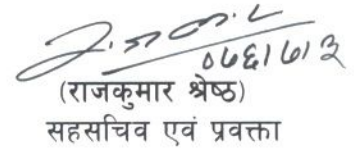 ०७६।७।३
(राजकुमार श्रेष्ठ)
सहसचिव एवं प्रवक्ता